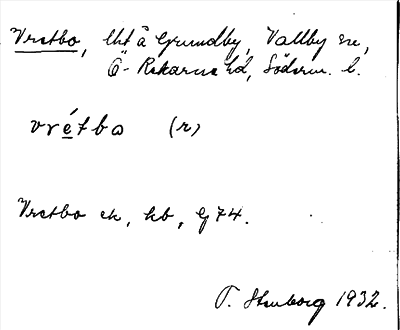 Vretbo, lht å Grundby, Vallby sn,
Ö-Rekarne hd, Söderm. l.
vrétbo (r)
Vretbo ek, hb, G 74.
T. Stenborg 1932.